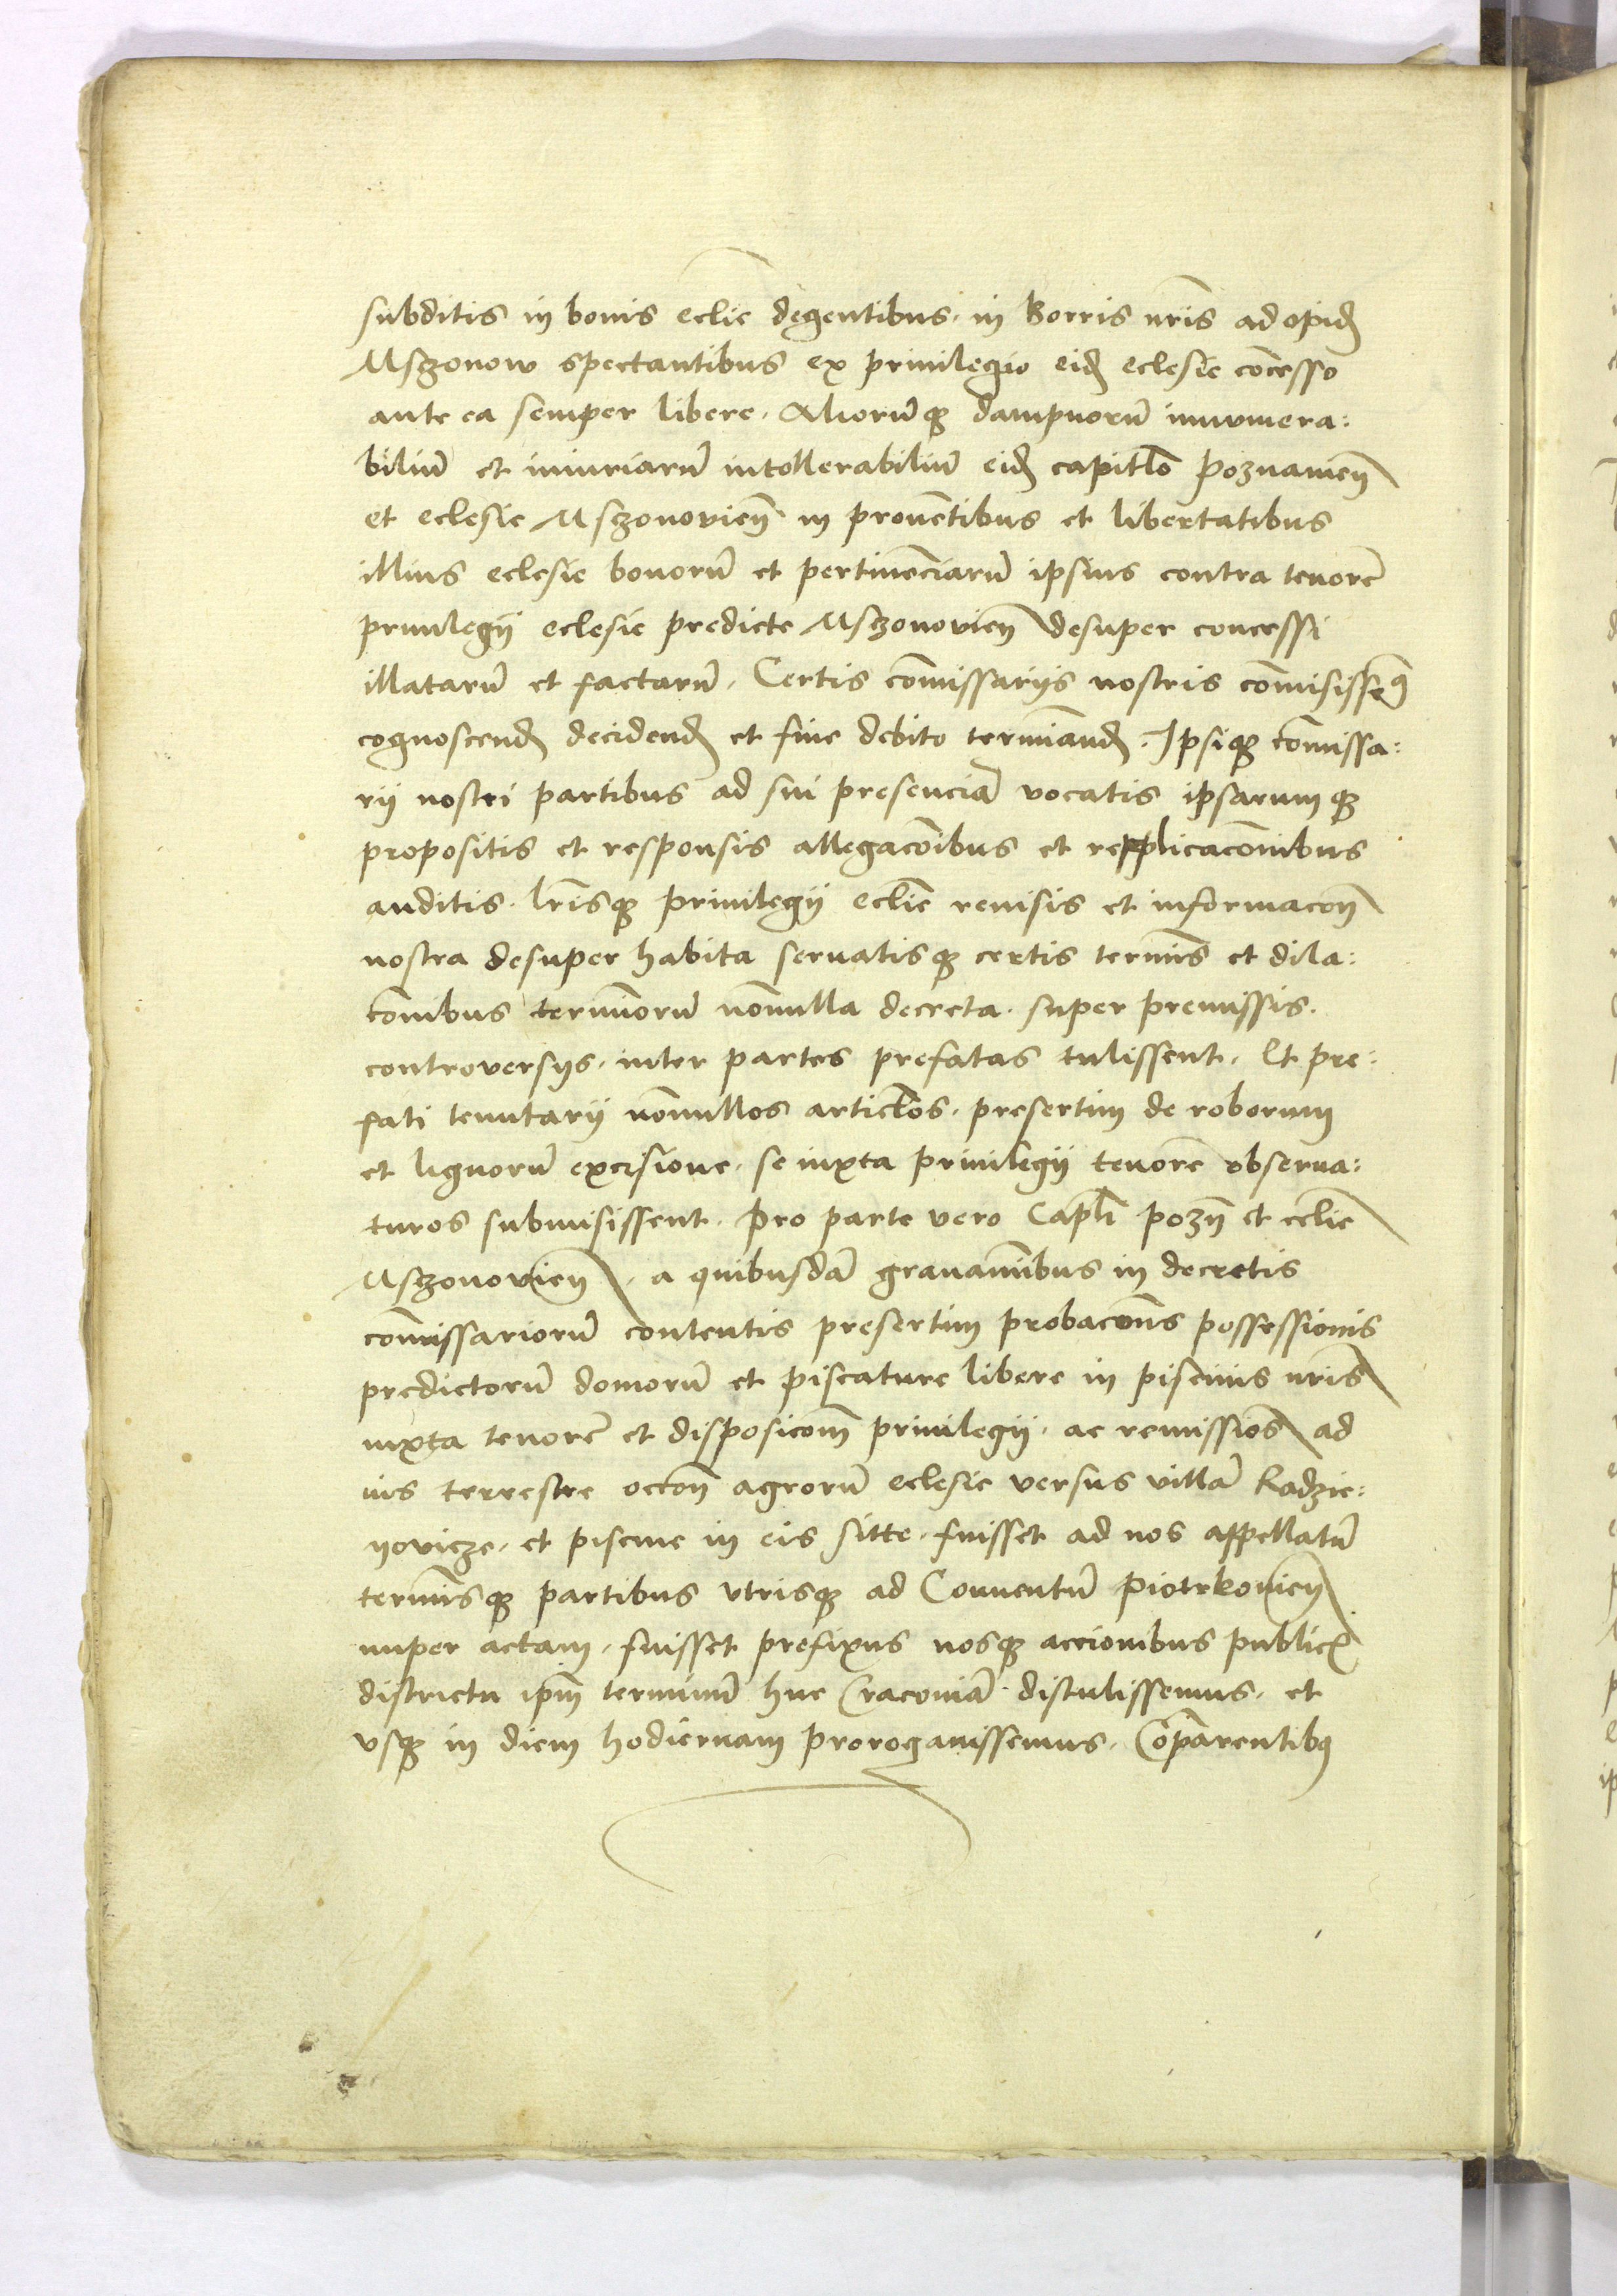 subditis in bonis eclie degentibus. in Borris nris ad opid
Msczonow spectantibus ex priuilegio eid eclesie concesso
ante ea semper libere. Aliorumq dampnorum innumera:
bilium et iniuriarum intollerabilium eid capitlo Poznanien
et eclesie Msczonovien in prouentibus et libertatibus
illius eclesie bonorum et pertinenciarum ipsius contra tenore
priuilegij eclesie predicte Msczonovien desuper concessi
illatarum et factarum. Certis commissarijs nostris commisissemus
cognoscend decidend et fine debito terminand. Ipsiq comissa:
rij nostri partibus ad sui presencia vocatis ipsarumq
propositis et responsis allegacionibus et replicacionibus
auditis. lrisq priuilegij eclie reuisis et informacon
nostra desuper habita seruatisq certis terminis et dila:
cionibus terminorum nonnulla decreta. super premissis.
controversijs. inter partes prefatas tulissent. Et pre:
fati tenutarij nonnullos articlos. presertim de roborum
et lignorum excisione. se iuxta priuilegij tenore obserua:
turos submisissent. Pro parte vero Capli Pozn et eclie
Msczonovien. a quibusdam grauaminibus in decretis
commissariorum contentis presertim probacionis possessionis
predictorum domorum et piscature libere in piscinis nris
iuxta tenore et disposicom priuilegij. ac remissios ad
ius terrestre occon agrorum eclesie versus villa Radzie:
yovicze. et piscine in eis sitte. fuisset ad nos appellatum
terminisq partibus vtrisq ad Conuentum Piotrkovien
nuper actam. fuisset prefixus nosq accionibus publicis
districtu ipm terminum huc Cracouia distulissemus. et
vsq in diem hodiernam prorogauissemus. Comparentibus